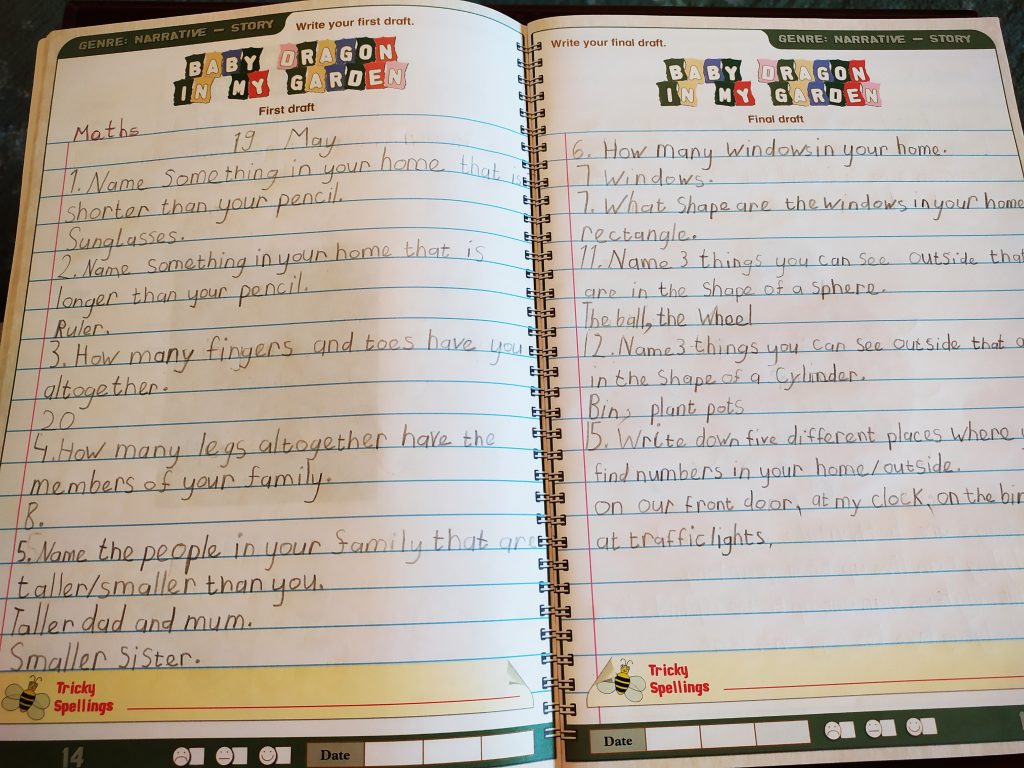 GENRE: NARRATIVE – STORY
Write your first draft.
BABY DRAGON
IN MY GARDEN
First draft
Maths
19 May
1. Name something in your home that is
shorter than your pencil.
Sunglasses.
2. Name something in your home that is
longer than your pencil.
Ruler.
3. How many fingers and toes have you
altogether.
20
4. How many legs altogether have the
members of your family.
8.
5. Name the people in your family that are
taller/smaller than you.
Taller dad and mum.
Smaller Sister.
Tricky
Spellings
14
Date
Write your final draft.
GENRE: NARRATIVE – STORY
BABY DRAGON
IN MY GARDEN
Final draft
6. How many windows in your home.
7 windows.
7. What shape are the windows in your home
rectangle.
11. Name 3 things you can see outside that
are in the shape of a sphere.
The ball, the wheel
12. Name 3 things you can see outside that
in the shape of a cylinder.
Bin, plant pots
15. Write down five different places where
find numbers in your home/outside.
on our front door, at my clock, on the bin
at traffic lights,
Tricky
Spellings
Date